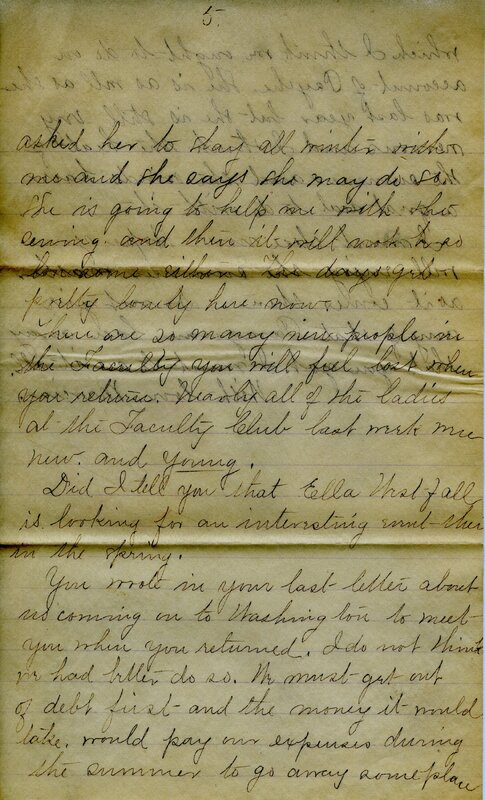 5.
asked her to stay all winter with
me and she says she may do so.
She is going to help me with the
sewing. and then it will not be so
lonesome either. The days get
pretty lonely here now.
There are so many new people in
the Faculty you will feel lost when
you return. Nearly all of the ladies
at the Faculty Club last week were
new. and young.
Did I tell you that Ella West-fall
is looking for an interesting event-
in the spring.
You wrote in your last letter about
us coming on to Washington to meet
you when you returned. I do not think
we had better do so. We must get out
of debt first and the money it would
take. would pay our expenses during
the summer to go away someplace